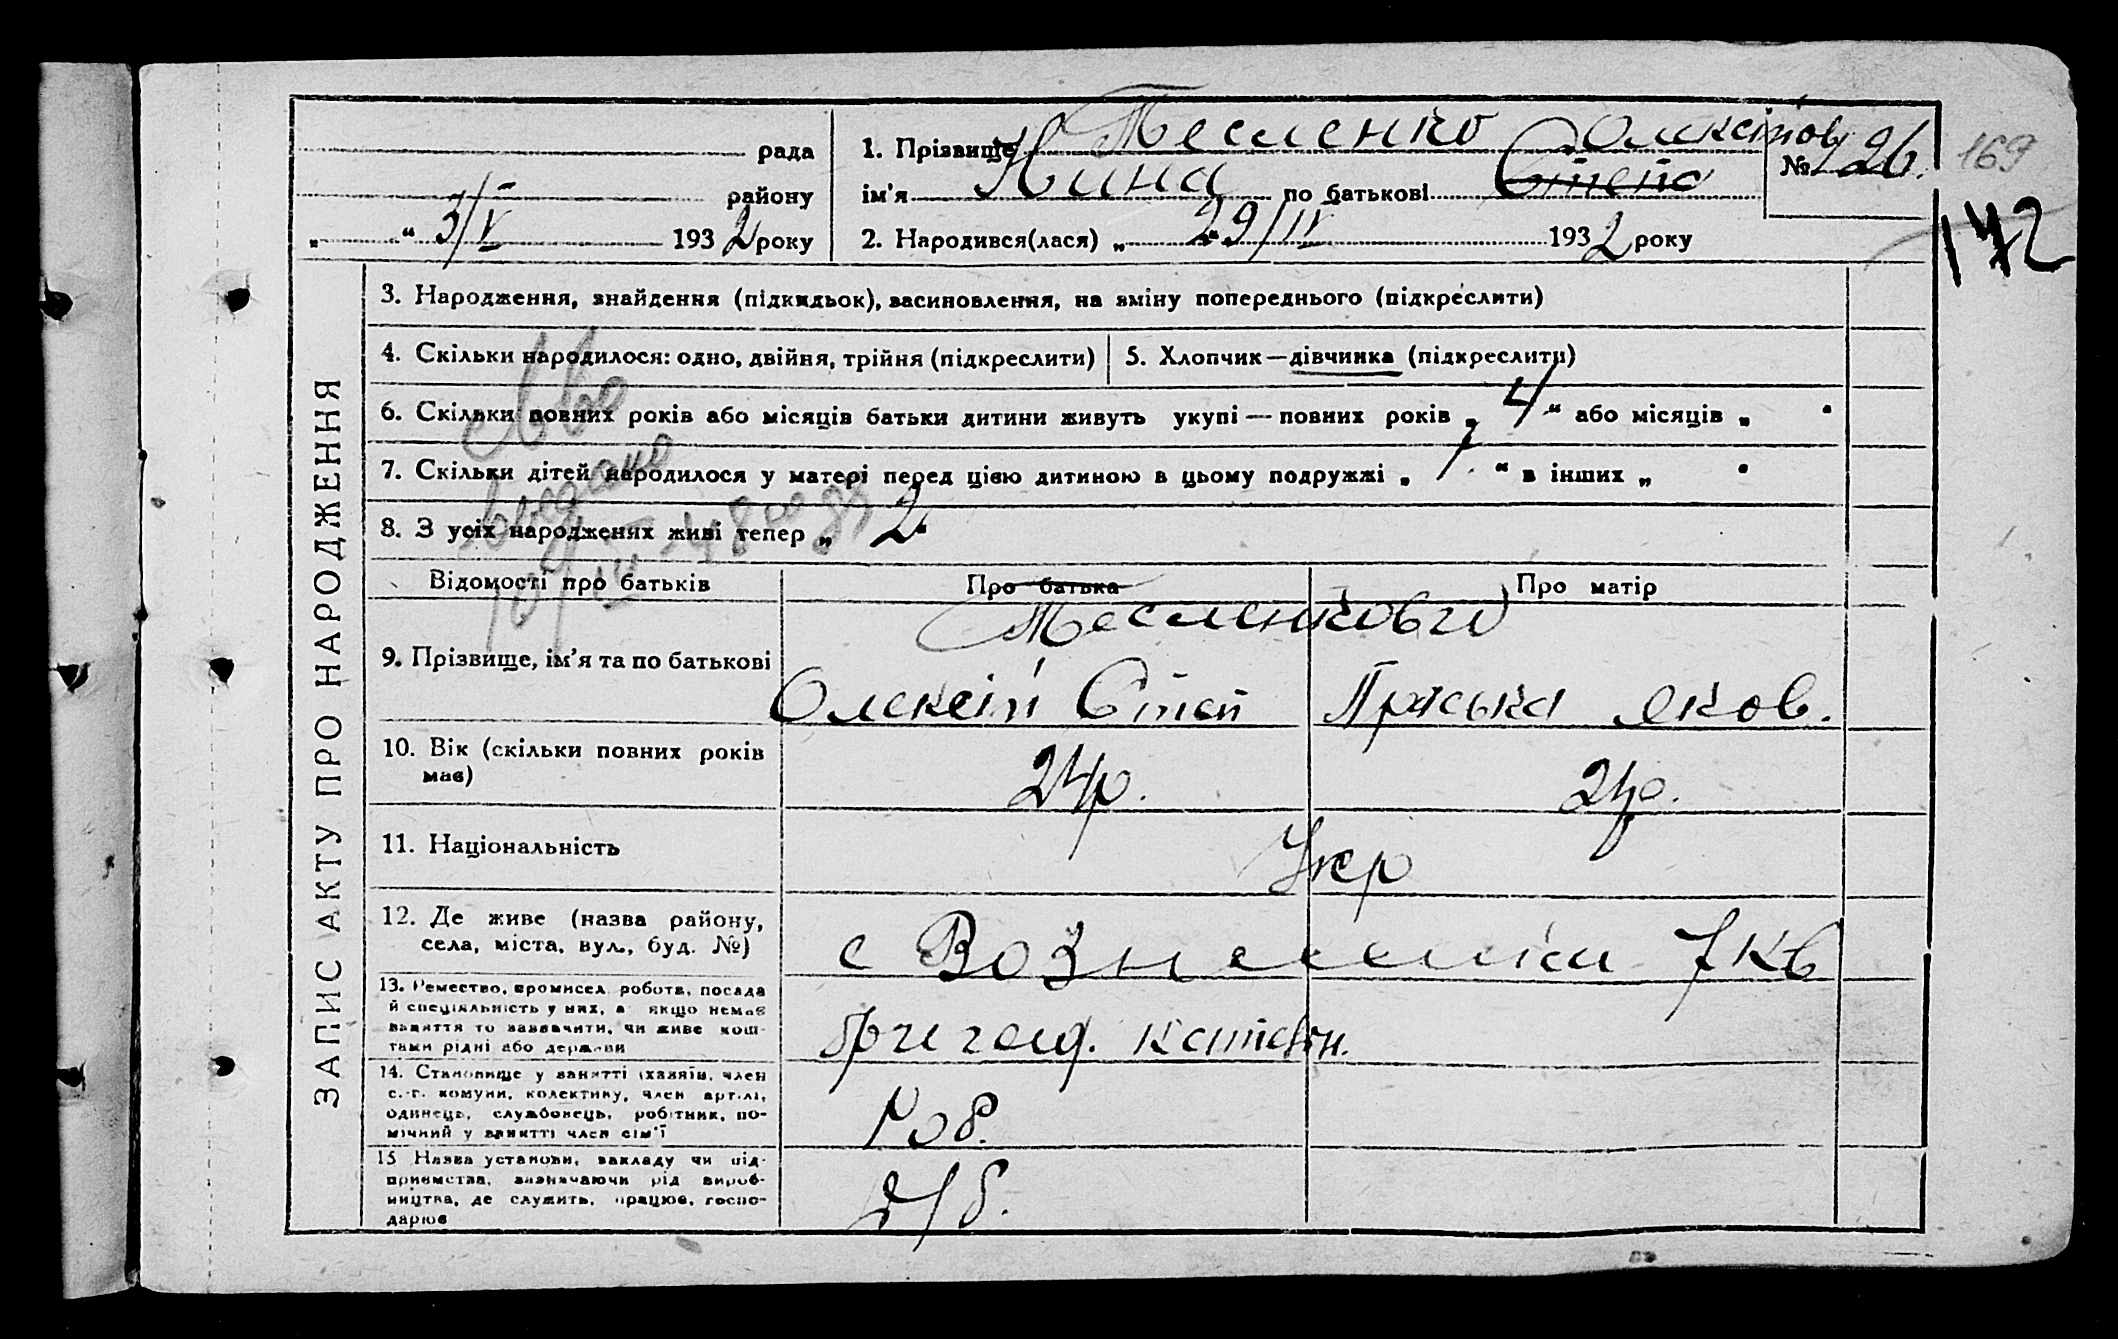 рада
району
„ “ 3/V 1932 року
1. Прізвище Тесленко
ім'я Нина по батькові Степа Олексіїов
№ 126.
169
172
2. Народився(лася) „ 29/IV 1932 року
ЗАПИС АКТУ ПРО НАРОДЖЕННЯ
3. Народження, знайдення (підкидьок), засиновлення, на зміну попереднього (підкреслити)
4. Скільки народилося: одно, двійня, трійня (підкреслити)
5. Хлопчик—дівчинка (підкреслити)
6. Скільки повних років або місяців батьки дитини живуть укупі — повних років „ 4 “ або місяців „ “
7. Скільки дітей народилося у матері перед цією дитиною в цьому подружжі „ 1. “ в інших „ “
8. З усіх народжених живі тепер „ 2 “
Св во
видано
10/IV 48
Відомості про батьків
Про батька
Про матір
9. Прізвище, ім'я та по батькові
Тесленкови
Олексій Степ
Пріська Яков.
10. Вік (скільки повних років має)
24р.
24р.
11. Національність
Укр
12. Де живе (назва району,
села, міста, вул., буд. №)
с Вознесенки 7 кв
13. Ремество, промисел робота, посада
й спеціяльність у них, а якщо немає
заняття то зазначити, чи живе кош-
тами рідні або держави
бригад.
14. Становище у занятті (хазяїн, член
с.-г. комуни, колективу, член артілі,
одинець, службовець, робітник, по-
мічний у занятті член сім'ї
Роб.
15 Назва установи, закладу чи під-
приємства, зазначаючи рід вироб-
ництва, де служить, працює, госпо-
дарює